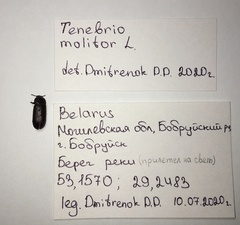 Tenebrio
molitor L.
det. Dmitrenok D.D. 2020г.
Belarus
Могилевская обл, Бобруйский р-н
г. Бобруйск
Берег реки (прилетел на свет)
53,1570; 29,2483
leg. Dmitrenok D.D. 10.07.2020г.